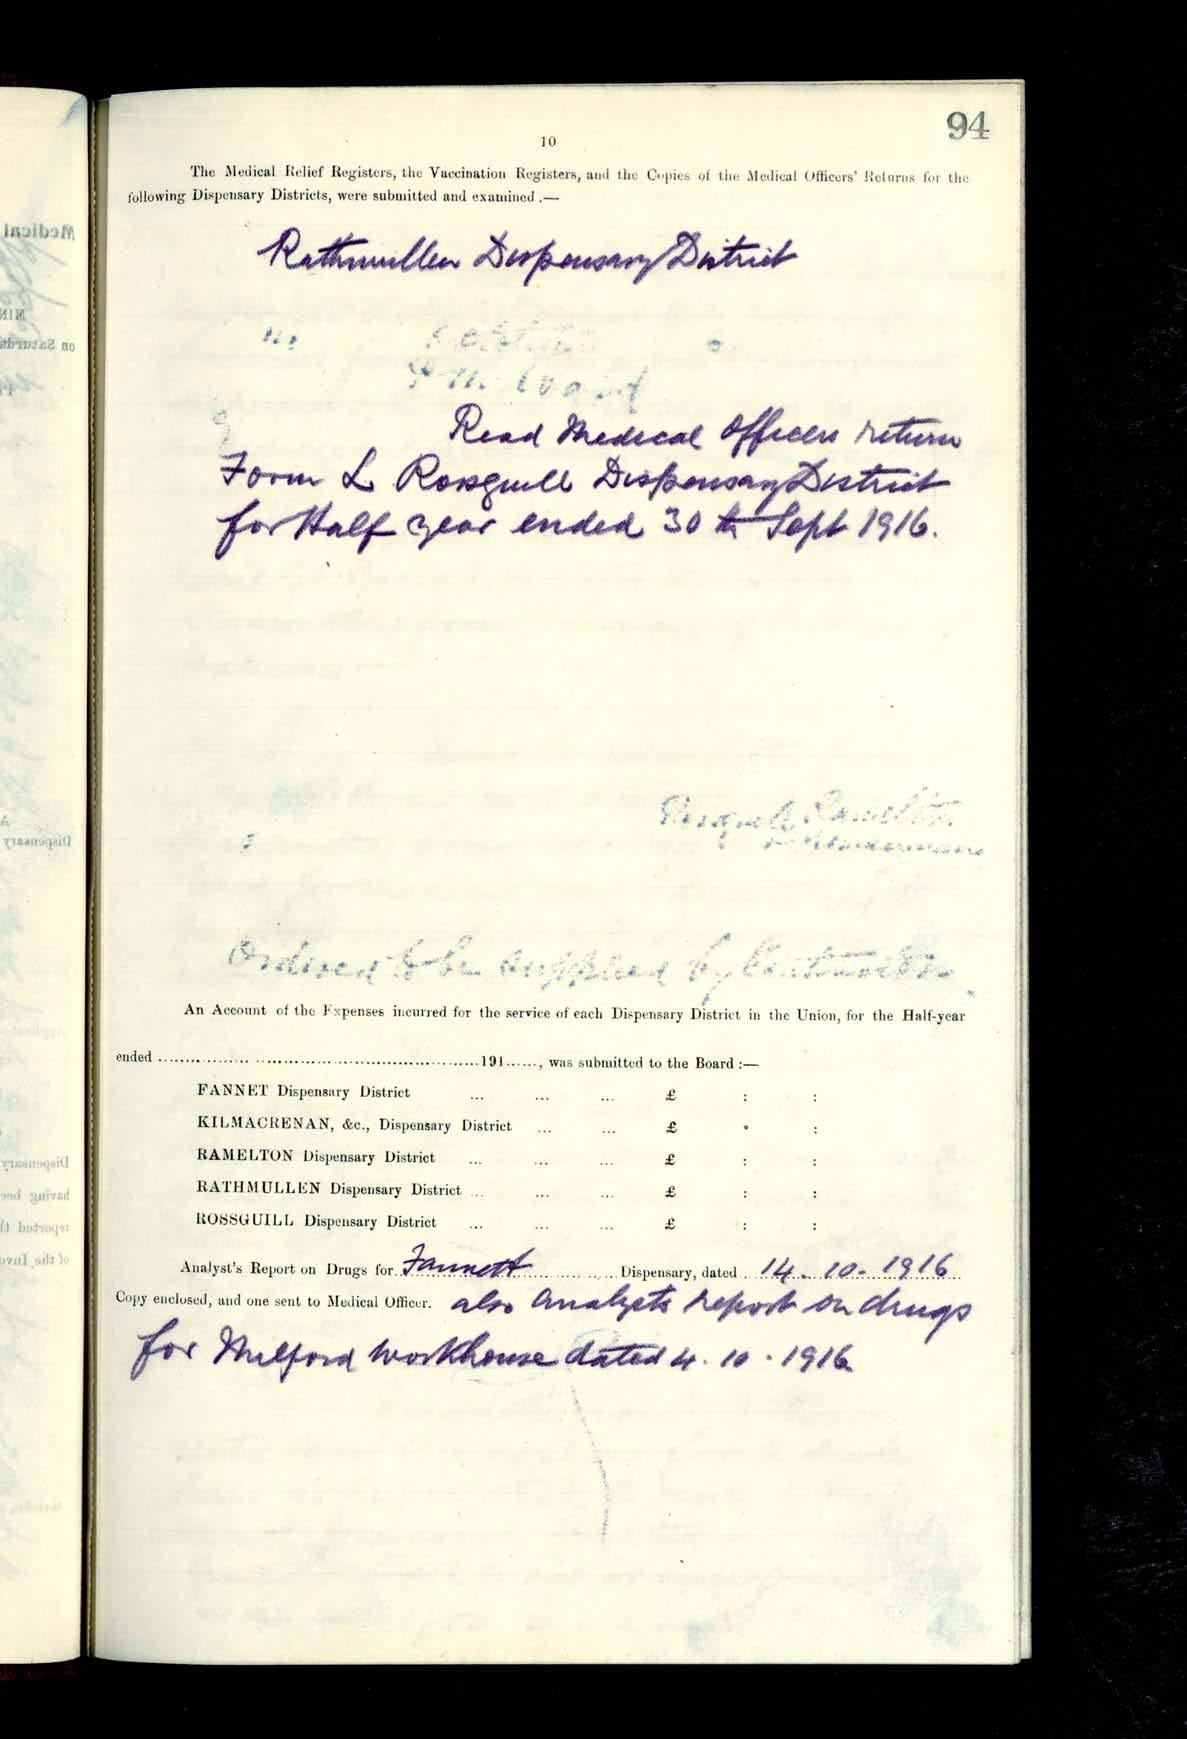 94
10
The Medical Relief Registers, the Vaccination Registers, and the Copies of the Medical Officers' Returns for the
following Dispensary Districts, were submitted and examined .—
Rathmullen Dispensary District
Read Medical Officers return
Form L Rossguill Dispensary District
for Half year ended 30th Sept 1916.
Ramelton
Ordered to be supplied by Contractor
An Account of the Expenses incurred for the service of each Dispensary District in the Union, for the Half-year
ended .................. 191......, was submitted to the Board :—
FANNET Dispensary District ... ... ... £ : :
KILMACRENAN, &c., Dispensary District ... ... £ : :
RAMELTON Dispensary District ... ... ... £ : :
RATHMULLEN Dispensary District ... ... ... £ : :
ROSSGUILL Dispensary District ... ... ... £ : :
Analyst's Report on Drugs for Fannett Dispensary, dated 14.10.1916
Copy enclosed, and one sent to Medical Officer. also Analysts report on drugs
for Milford Workhouse dated 4.10.1916